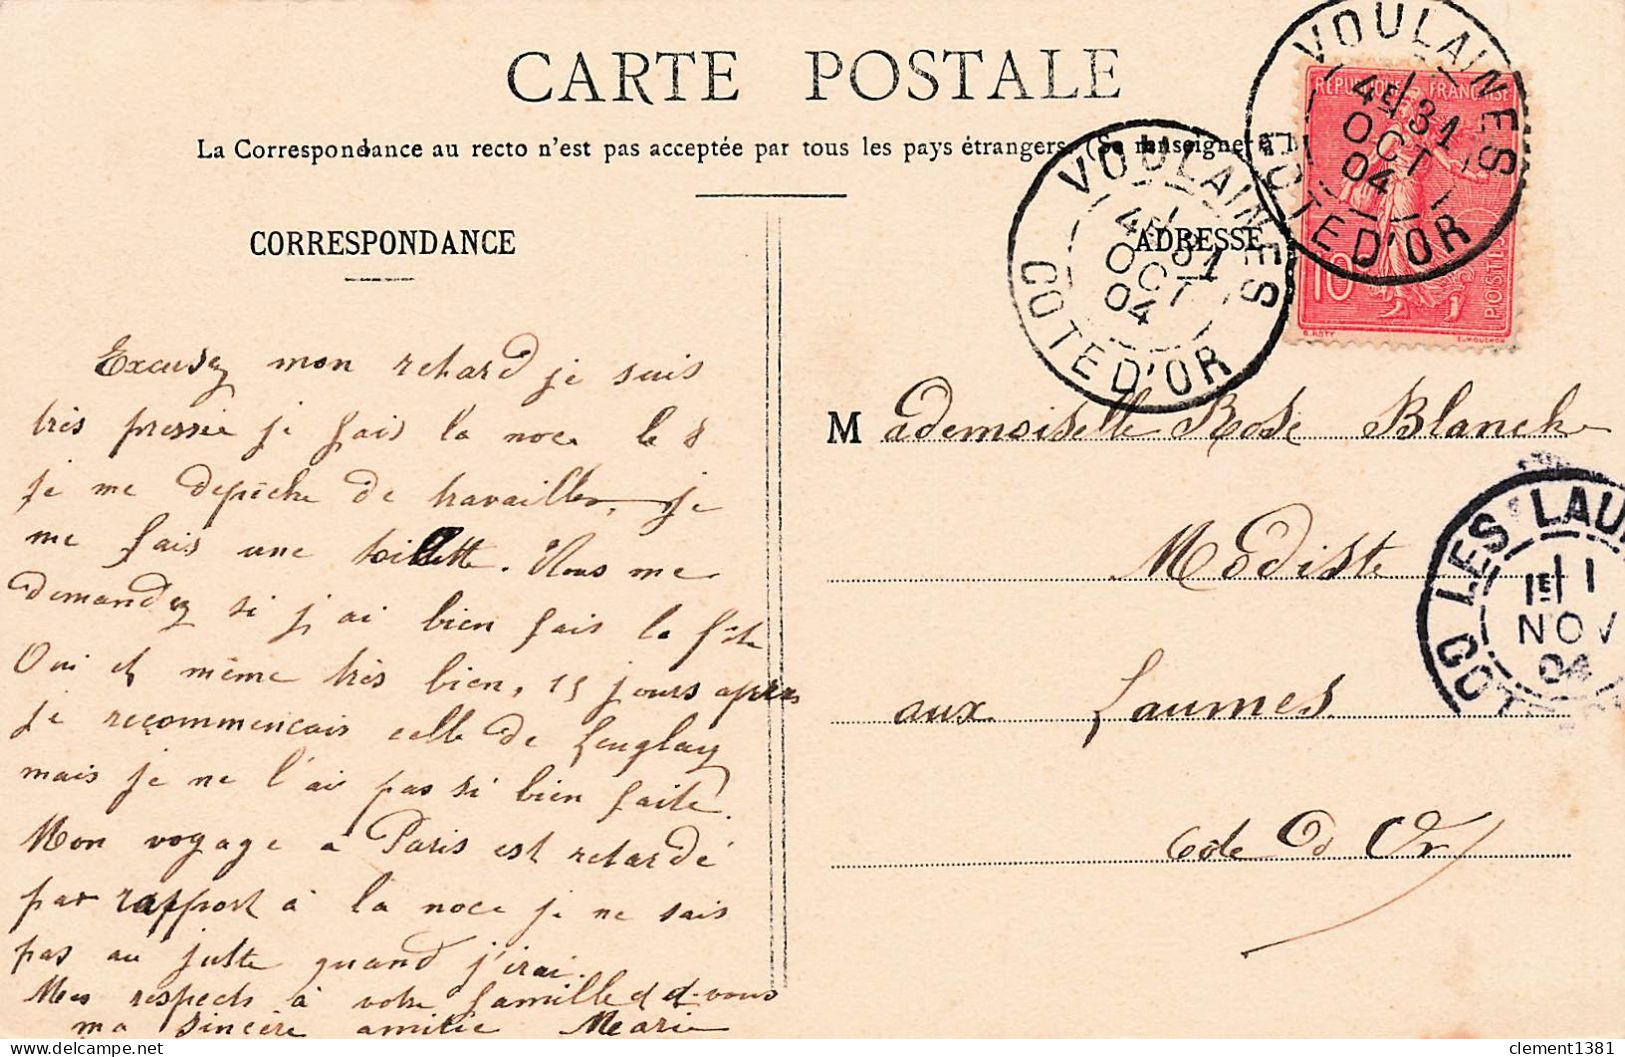 CARTE POSTALE
La Correspondance au recto n'est pas acceptée par tous les pays étrangers. (Se renseigner à l
CORRESPONDANCE
ADRESSE
VOULAINES
4E 31
OCT
04
COTE D'OR
VOULAINES
4E 31
OCT
04
COTE D'OR
REPUBLIQUE FRANÇAISE
10
POSTES
O. ROTY
E. MOUCHON
Excusez mon retard je suis
très pressée je fais la noce le 8
je me depêche de travailler, je
me fais une toilette. Vous me
demandez si j'ai bien fait la fête
Oui et même très bien, 15 jours après
je recommencais celle de
mais je ne l'ai pas si bien faite.
Mon voyage a Paris est retardé
par rapport à la noce je ne sais
pas au juste quand j'irai.
Mes respects à votre famille et à vous
ma sincère amitie Marie
Mademoiselle Rose Blanche
Modiste
aux Laumes
Cote d'Or
LES LAU
1E 1
NOV
04
COT
clement1381